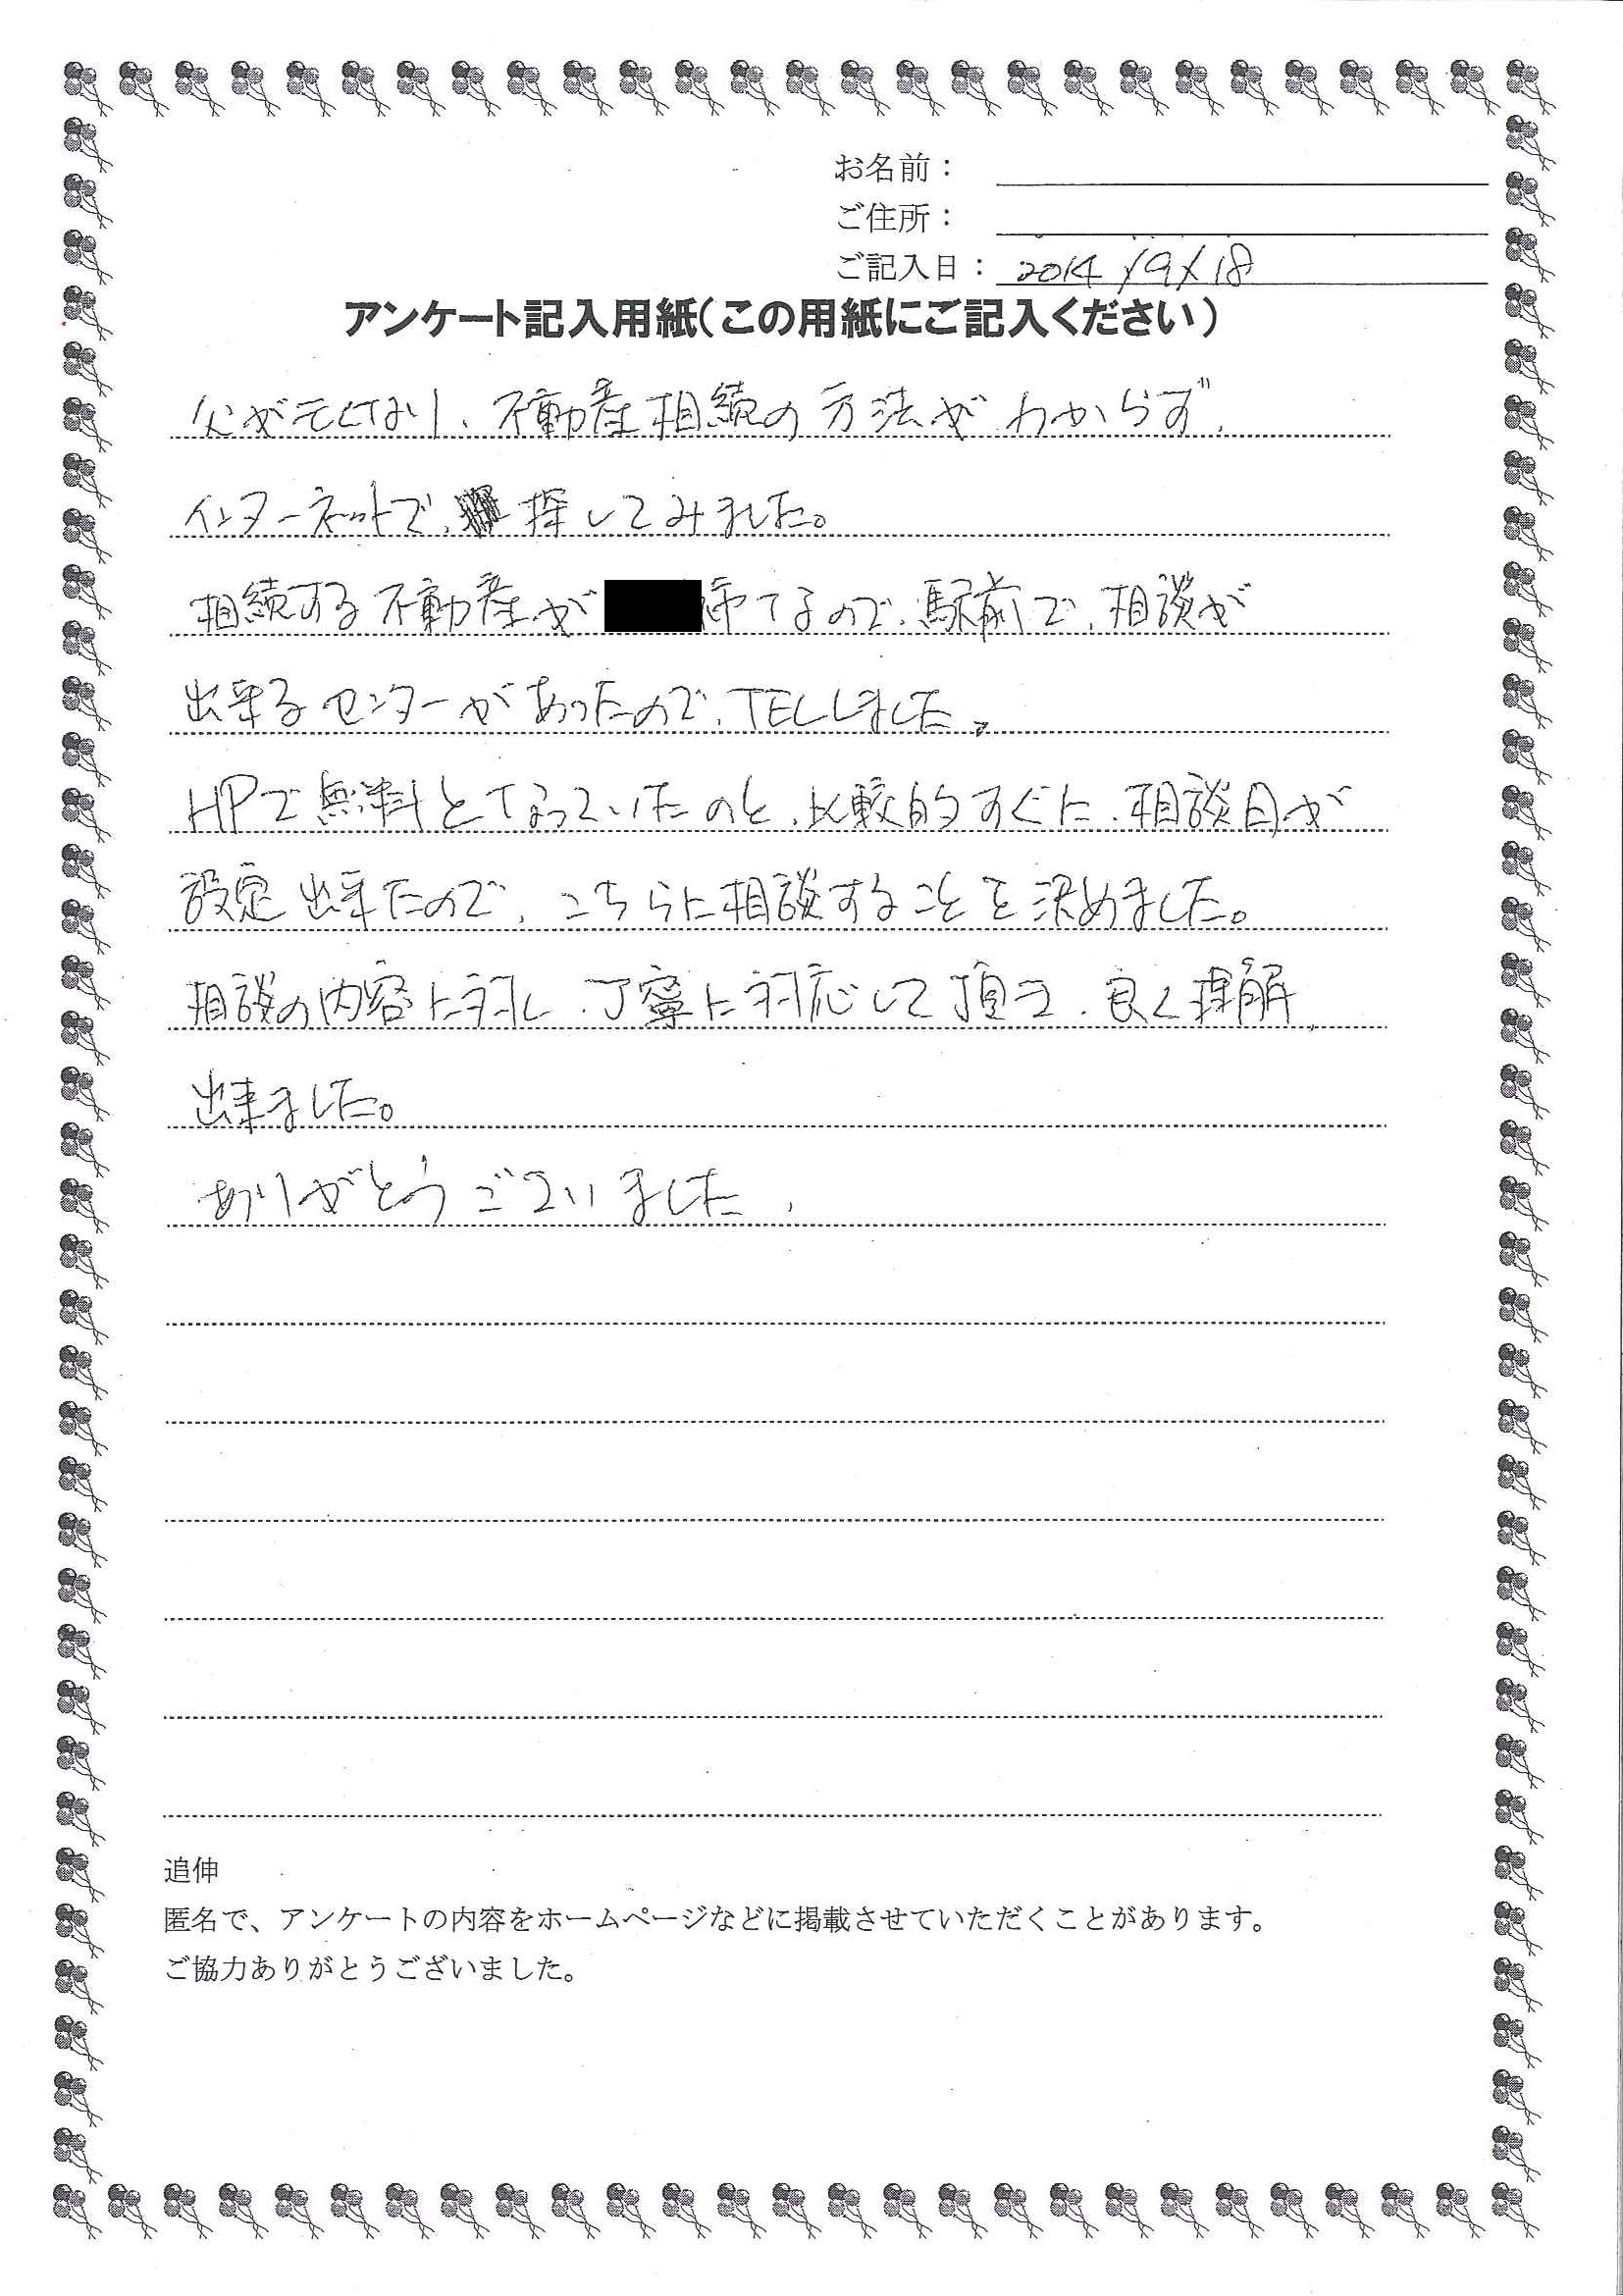 お名前：
ご住所：
ご記入日：2014/9/18
アンケート記入用紙（この用紙にご記入ください）
父が亡くなり、不動産相続の方法がわからず、
インターネットで、探してみました。
相続する不動産が市なので、駅前で、相談が
出来るセンターがあったので、TELしました。
HPで無料となっていたのと、比較的すぐに、相談日が
設定出来たので、こちらに相談することを決めました。
相談の内容に対し、丁寧に対応して頂き、良く理解
出来ました。
ありがとうございました。
追伸
匿名で、アンケートの内容をホームページなどに掲載させていただくことがあります。
ご協力ありがとうございました。